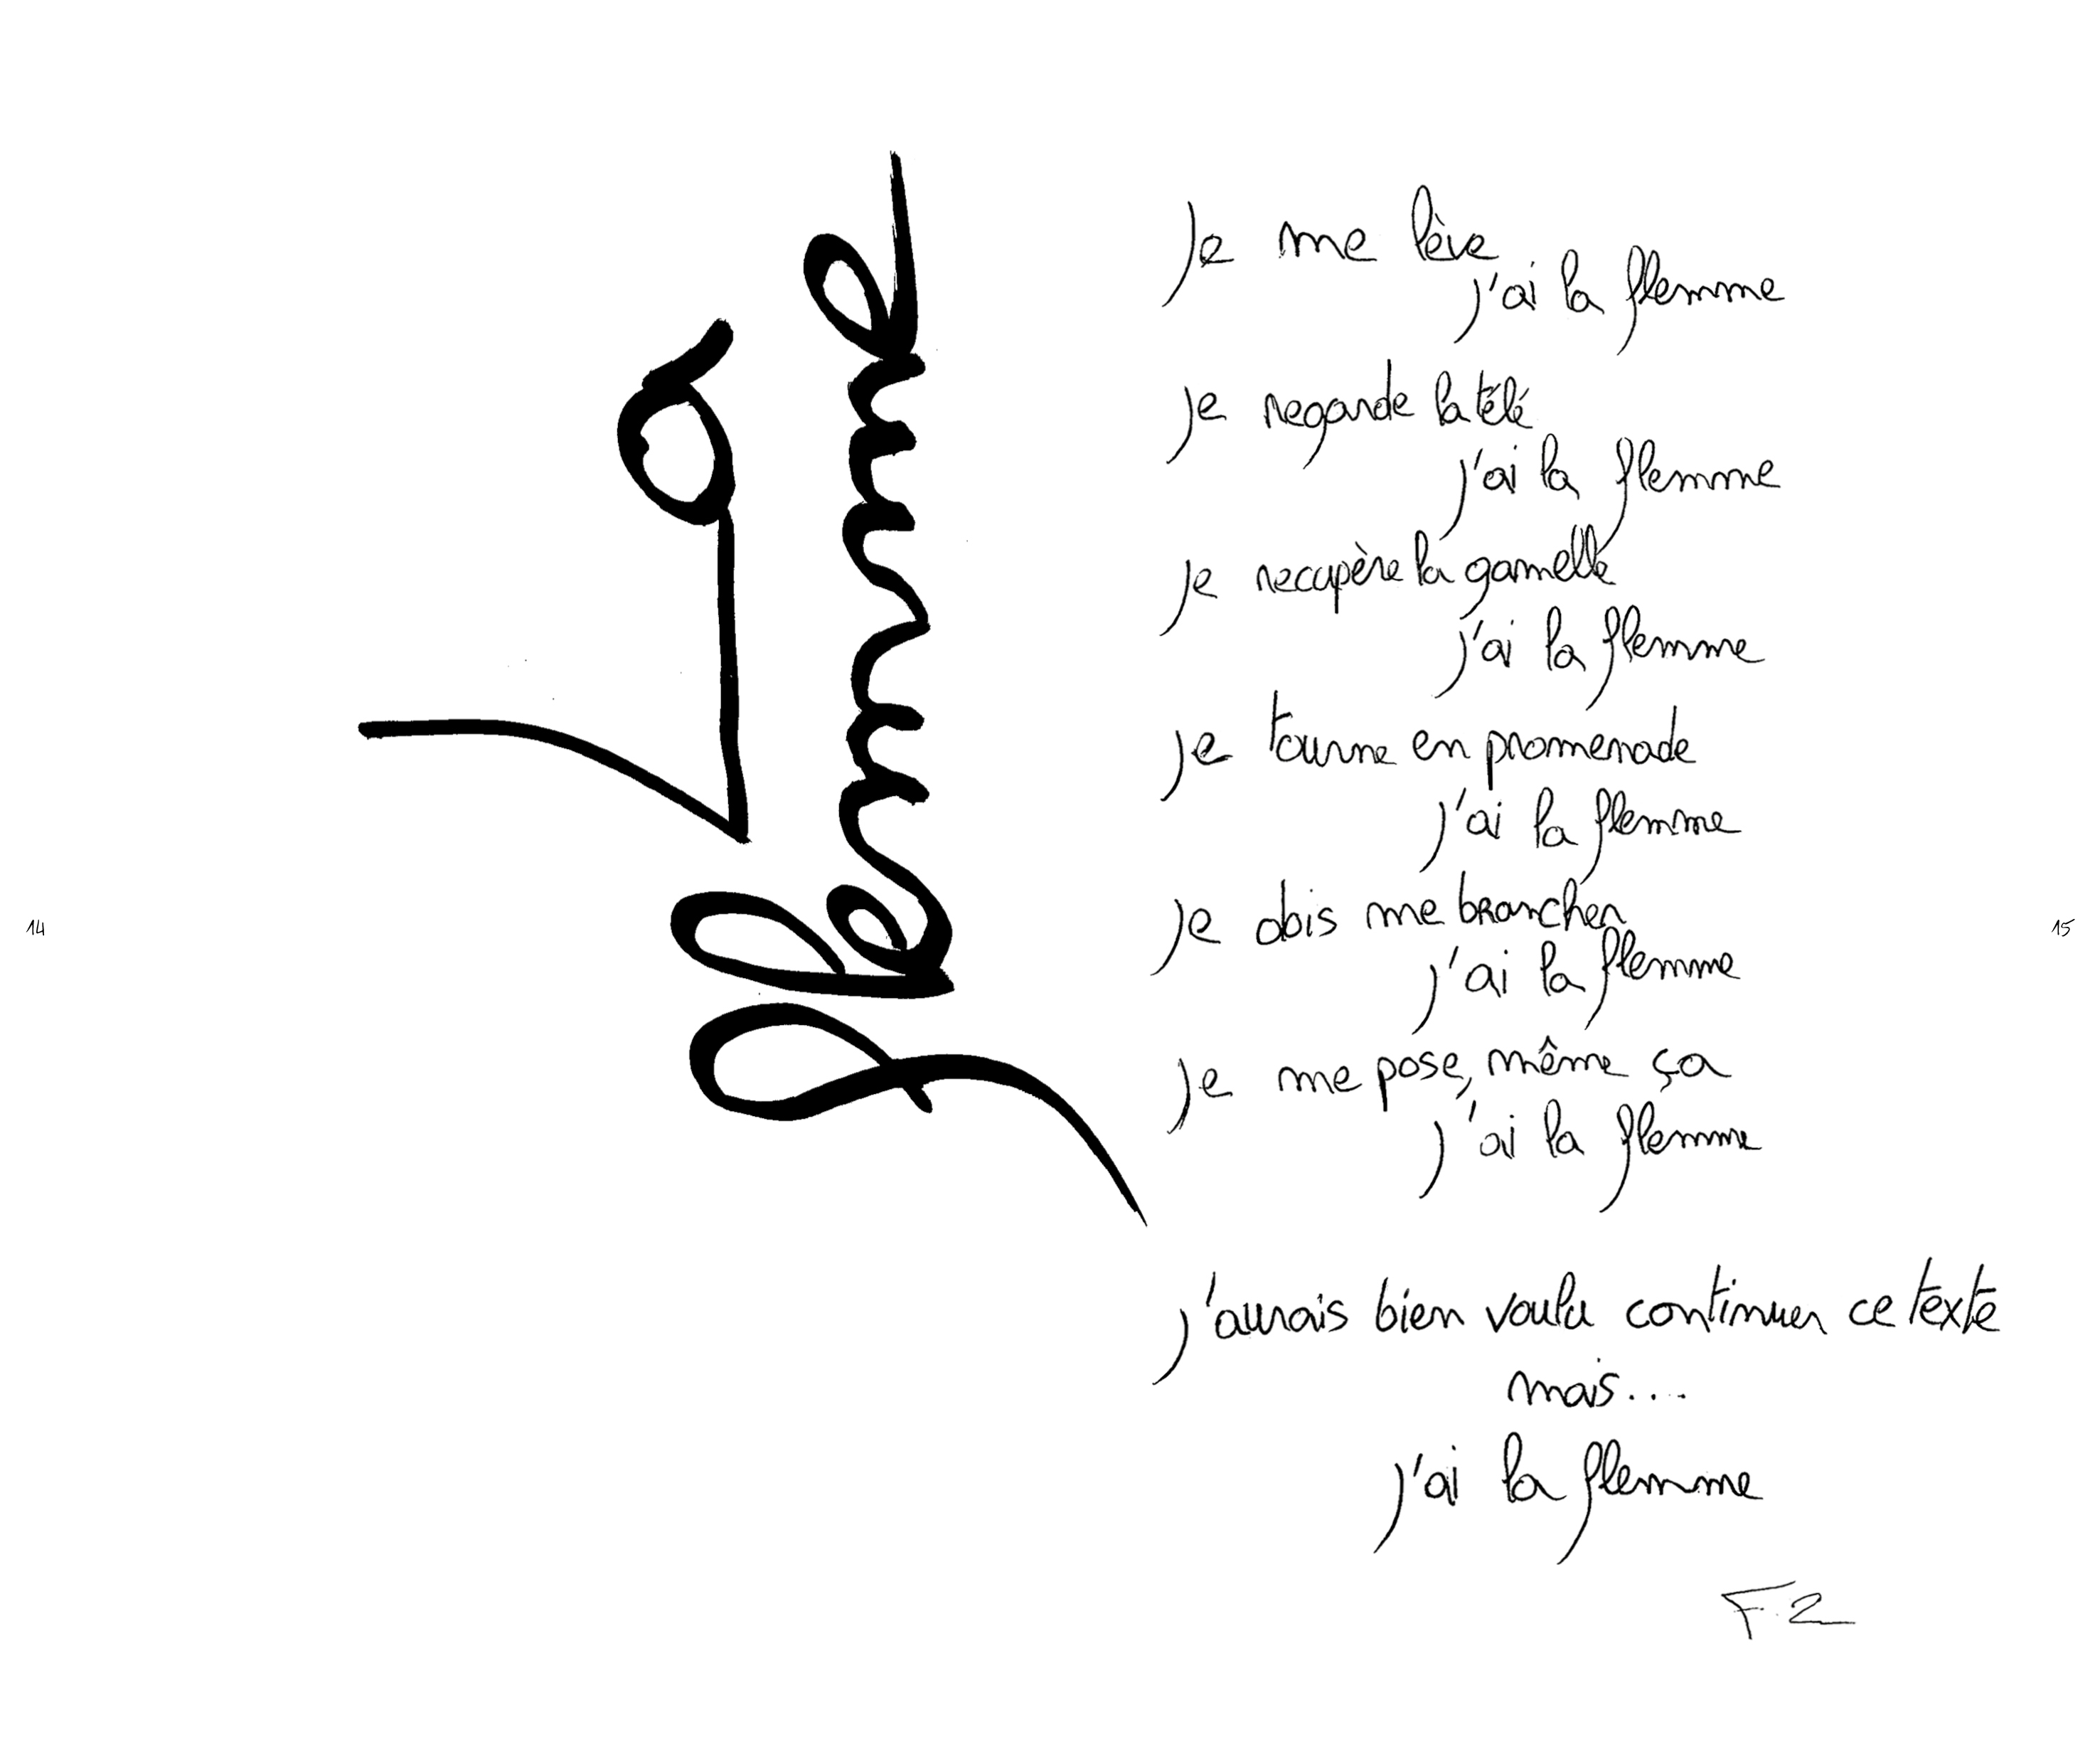 la
flemme
je me lève
j'ai la flemme
je regarde la télé
j'ai la flemme
je recupère la gamelle
j'ai la flemme
je tourne en promenade
j'ai la flemme
je dois me brancher
j'ai la flemme
je me pose, même ça
j'ai la flemme
j'aurais bien voulu continuer ce texte
mais....
j'ai la flemme
F.2
14
15